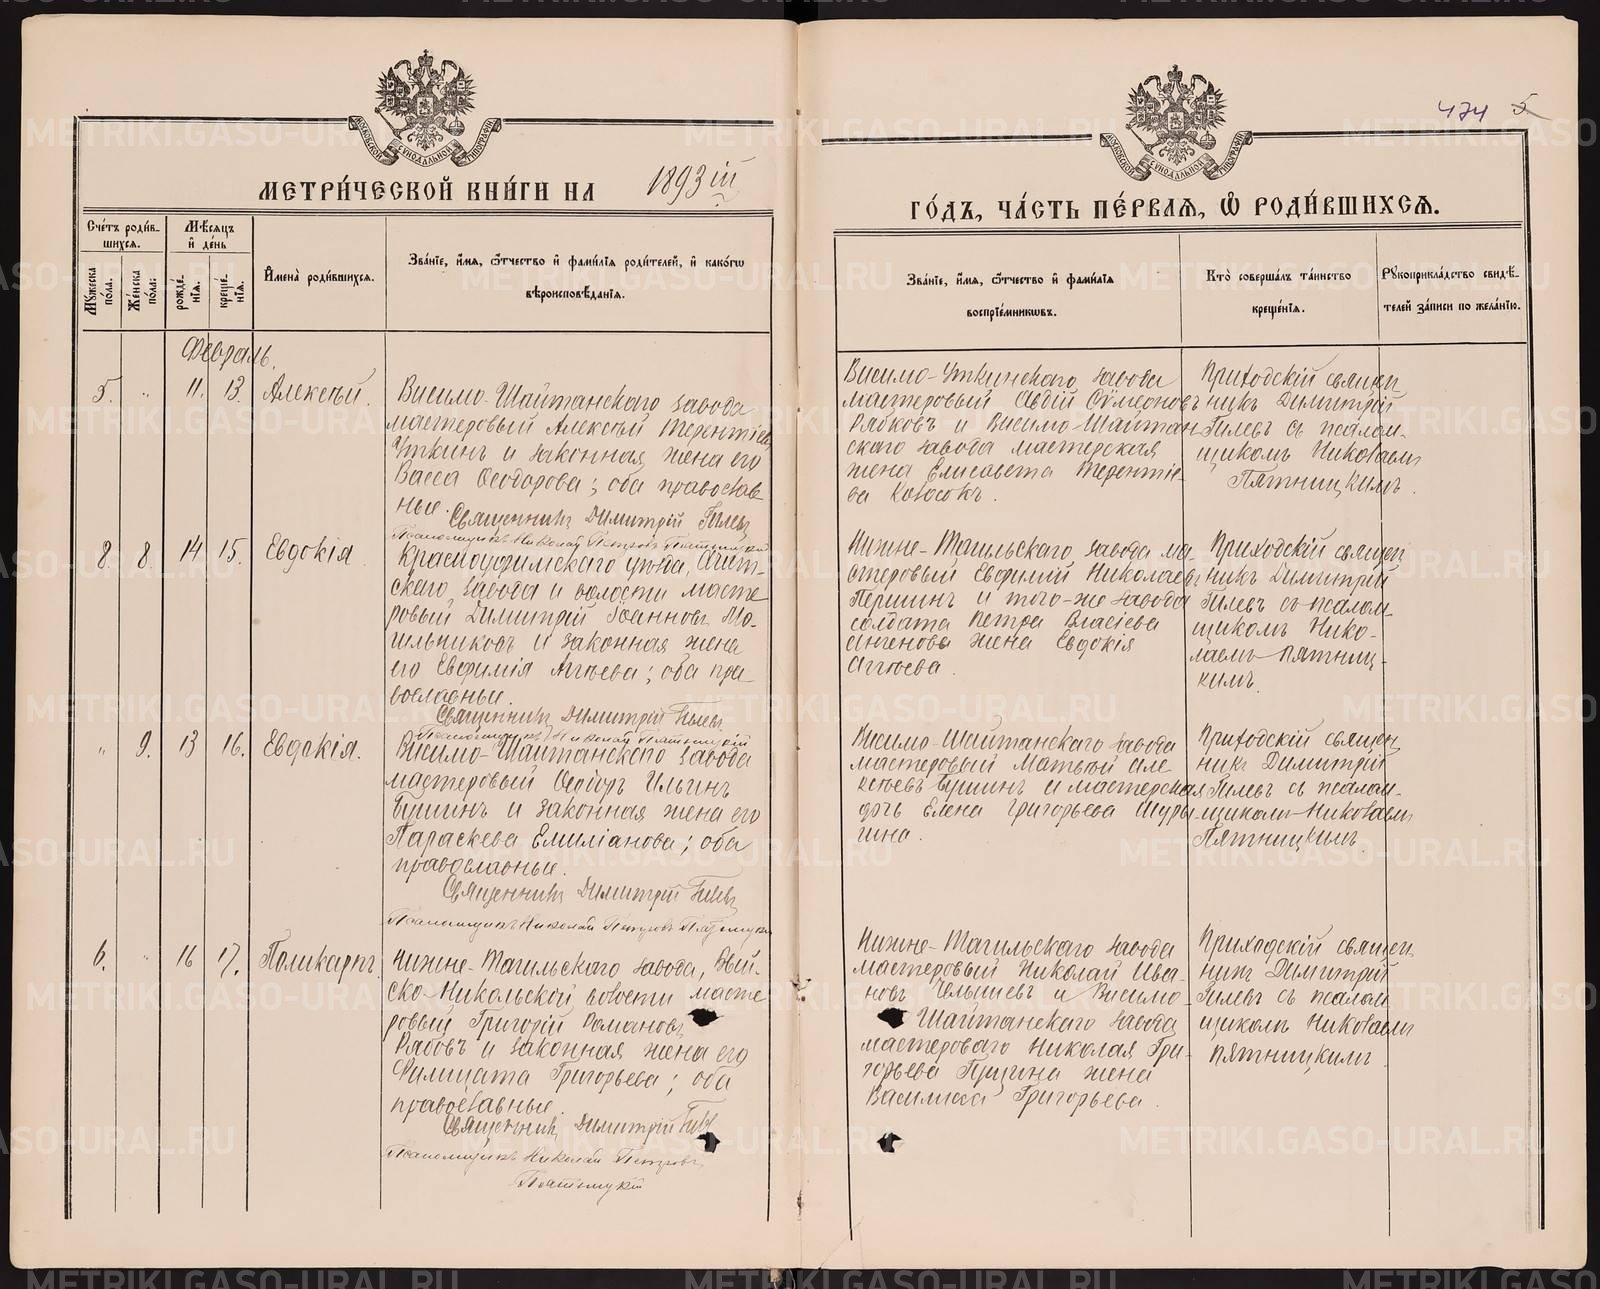 474 5
МОСКОВСКОЙ СѴНОДАЛЬНОЙ ТИПОГРАФІИ
МОСКОВСКОЙ СѴНОДАЛЬНОЙ ТИПОГРАФІИ
МЕТРИ́ЧЕСКОЙ КНИ́ГИ НА 1893 ій
ГО́ДЪ, ЧА́СТЬ ПЕ́РВАѦ, Ѽ РОДИ́ВШИХСѦ.
Сче́тъ роди́в-
шихся.
Мѣ́сяцъ
и̑ де́нь
Му́жеска
пола̀.
Же́нска
пола̀.
рожде́-
нія.
креще́-
нія.
И҆мена̀ роди́вшихся.
Зва́ніе, и҆́мя, ѻ҆́тчество и҆ фами́лія роди́телей, и҆ како́гѡ
вѣроисповѣ́данія.
Зва́ніе, и҆́мя, ѻ҆́тчество и҆ фами́лія
воспріе́мникѡвъ.
Кто̀ соверша́лъ та́инство
креще́нія.
Рукоприкла́дство свидѣ́-
телей за́писи по жела́нію.
Февраль.
5. " 11. 13. Алексѣй.
Висимо-Шайтанскаго завода
мастеровый Алексѣй Терентіев
Уткинъ и законная жена его
Васса Ѳеодорова; оба православ-
ные.
Священникъ Димитрій Гилевъ
Псаломщикъ Николай Петровъ Пятницкій
Висимо-Уткинскаго завода
мастеровый Авдій Сѵмеоновъ
Рябковъ и Висимо-Шайтан-
скаго завода мастерская
жена Елисавета Терентіе-
ва
Приходскій священ
никъ Димитрій
Гилевъ съ псалом-
щикомъ Николаемъ
Пятницкимъ.
8. 8. 14 15. Евдокія
Красноуфимскаго уѣзда, Ачит-
скаго завода и волости масте
ровый Димитрій Іоанновъ Мо-
сильниковъ и законная жена
его Евфимія Аггѣева; оба пра-
вославные.
Священникъ Димитрій Гилевъ
Псаломщикъ Николай Пятницкій
Нижне-Тагильскаго завода ма
стеровый Евфимій Николаевъ
Першинъ и того-же завода
солдата Петра Власіева
жена Евдокія
Аггѣева.
Приходскій священ
никъ Димитрій
Гилевъ съ псалом-
щикомъ Нико-
лаемъ Пятниц-
кимъ.
" 9. 13 16. Евдокія.
Висимо-Шайтанскаго завода
мастеровый Ѳеодоръ Ильинъ
Гущинъ и законная жена его
Параскева Емиліанова; оба
православные.
Священникъ Димитрій Гилевъ
Псаломщикъ Николай Петровъ Пятницкій
Висимо-Шайтанскаго завода
мастеровый Матѳей Але
ксѣевъ Гущинъ и мастерская
дочь Елена Григорьева Шуры-
гина.
Приходскій священ
никъ Димитрій
Гилевъ съ псалом-
щикомъ Николаемъ
Пятницкимъ.
6. " 16 17. Поликарпъ.
Нижне-Тагильскаго завода, Вый-
ско-Никольской волости масте
ровый Григорій Романовъ
Рябовъ и законная жена его
Филицата Григорьева; оба
православные.
Священникъ Димитрій Гилевъ
Псаломщикъ Николай Петровъ
Пятницкій
Нижне-Тагильскаго завода
мастеровый Николай Ива-
новъ и Висимо-
Шайтанскаго завода
мастероваго Николая Гри-
горьева Гущина жена
Василисса Григорьева.
Приходскій священ
никъ Димитрій
Гилевъ съ псалом
щикомъ Николаемъ
Пятницкимъ.
METRIKI.GASO-URAL.RU